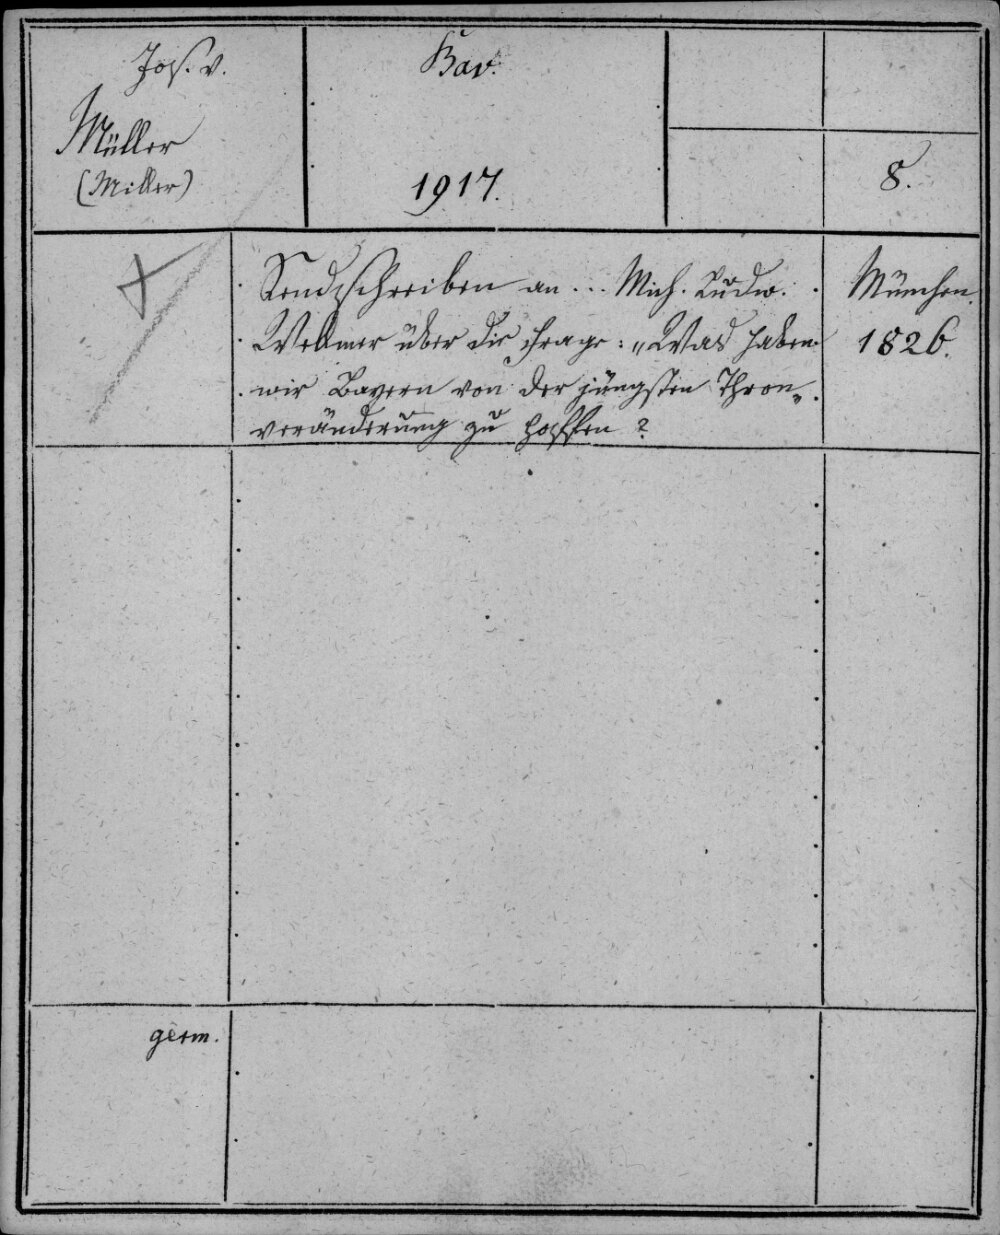 Jos. v.
Müller
(Miller)
Bav.
1917.
8.
Sendschreiben an ... Mich. Ludw.
Wellmer über die Frage: „Was haben
wir Bayern von der jüngsten Thron„
veränderung zu hoffen?
München.
1826.
germ.